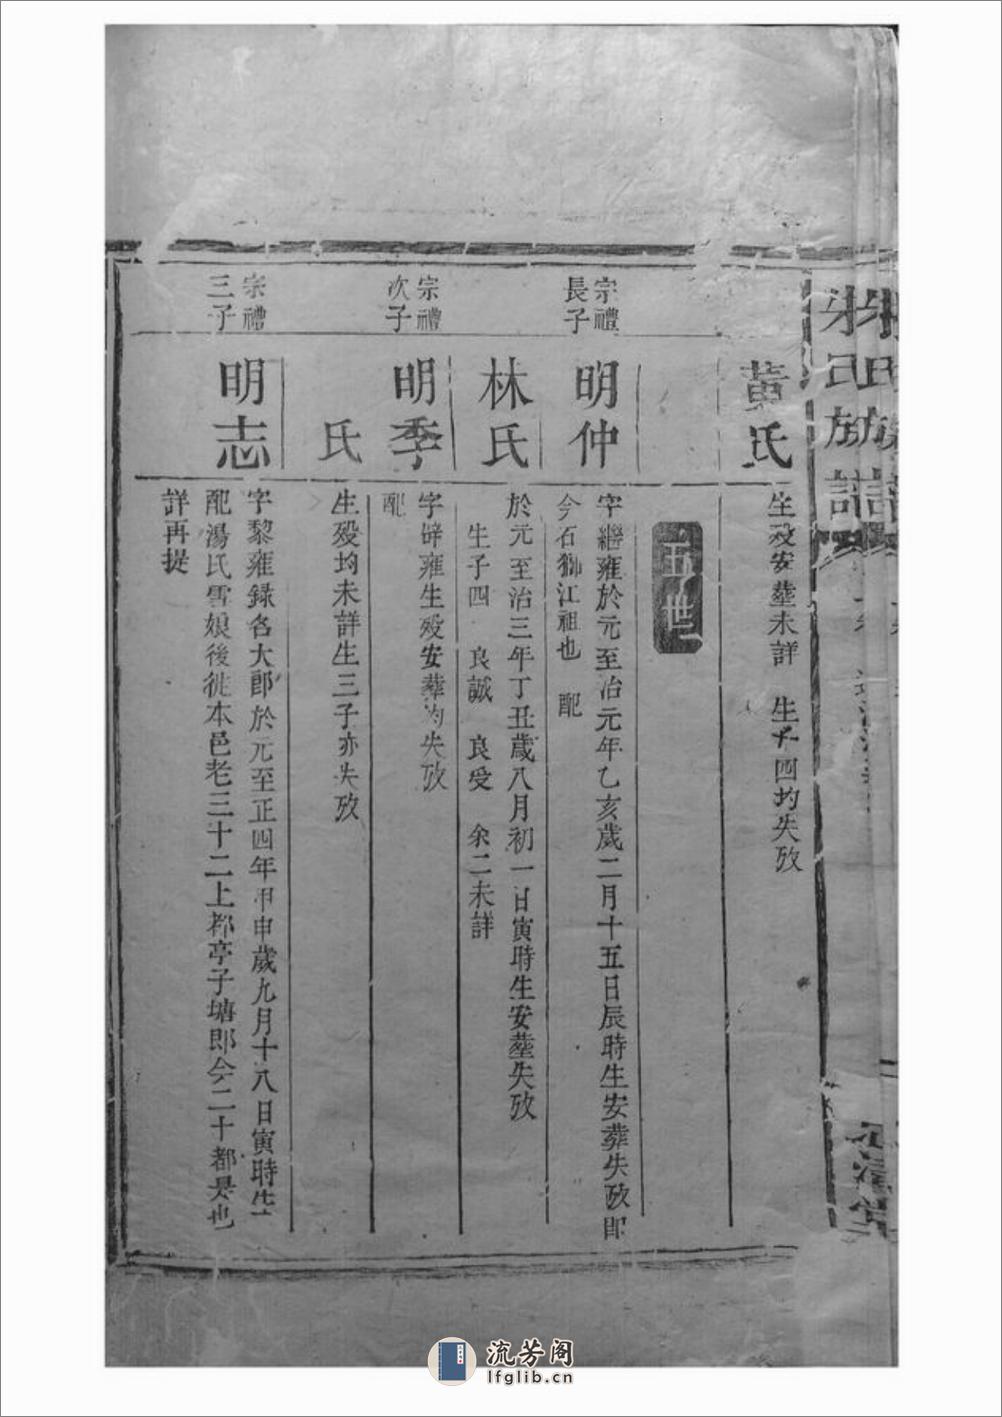 朱氏族譜
黃氏
生歿安塟未詳　生子四均失攷
五世
宗禮
長子
明仲
字繼雍於元至治元年乙亥歲二月十五日辰時生安葬失攷即
今石獅江祖也　配
林氏
於元至治三年丁丑歲八月初一日寅時生安塟失攷
生子四　良誠　良受　余二未詳
宗禮
次子
明季
字辟雍生歿安葬均失攷
配
氏
生歿均未詳生三子亦失攷
宗禮
三子
明志
字黎雍錄名大郎於元至正四年甲申歲九月十八日寅時生
配湯氏雪娘後徙本邑老三十二上都亭子塘即今二十都是也
詳再提
流芳阁
lfglib.cn